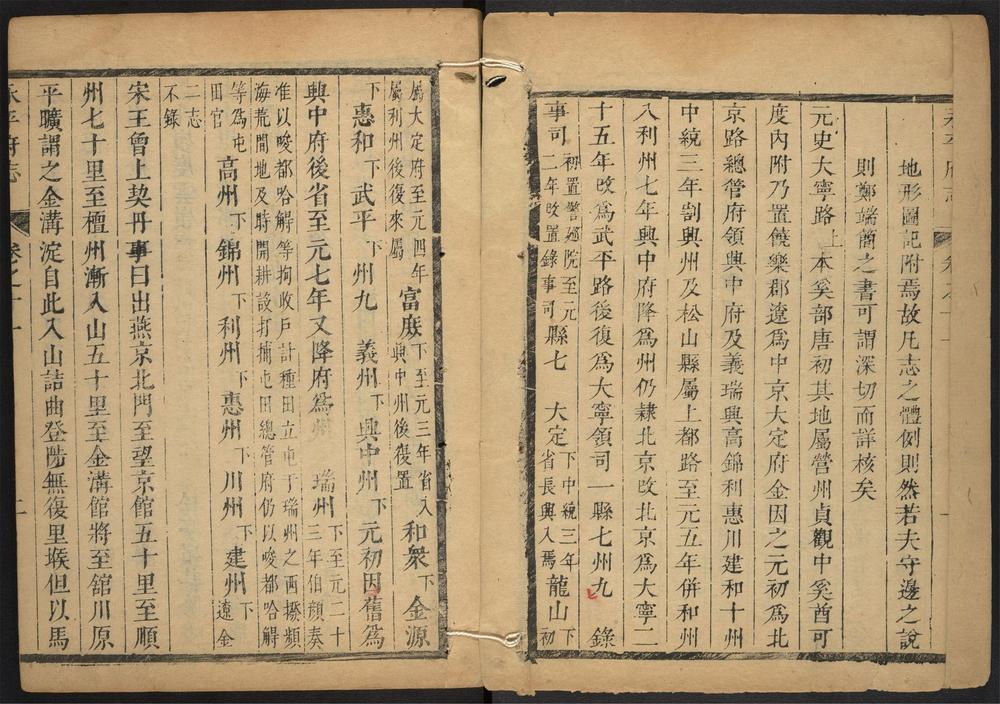 地形圖記附焉故凡志之體例則然若夫守邊之說
則鄭端簡之書可謂深切而詳核矣
元史大寧路上本奚部唐初其地屬營州貞觀中奚酋可
度內附乃置饒樂郡遼為中京大定府金因之元初為北
京路總管府領興中府及義瑞興高錦利惠川建和十州
中統三年割興州及松山縣屬上都路至元五年併和州
入利州七年興中府降為州仍隸北京改北京為大寧二
十五年改為武平路後復為大寧領司一縣七州九 錄
事司初置警廵院至元二年改置錄事司縣七 大定下中統三年省長興入焉龍山下初
屬大定府至元四年屬利州後復來屬富庶下至元三年省入興中州後復置和衆下金源
下惠和下武平下州九 義州下興中州下元初因舊為
興中府後省至元七年又降府為州 瑞州下至元二十三年伯顏奏
准以唆都哈䚟等拘收戶計種田立屯于瑞州之西撥瀕
海荒閒地及時開耕設打捕屯田總管府仍以唆都哈䚟
等為屯田官高州下錦州下利州下惠州下川州下建州下遼金
二志不錄
宋王曾上契丹事曰出燕京北門至望京館五十里至順
州七十里至檀州漸入山五十里至金溝館將至舘川原
平曠謂之金溝淀自此入山詰曲登陟無復里堠但以馬
永平府志 卷之十一